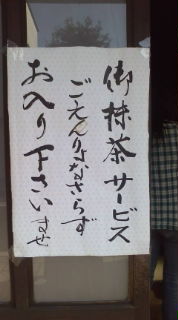 御抹茶サービス
ごえんりょなさらず
お入り下さいませ